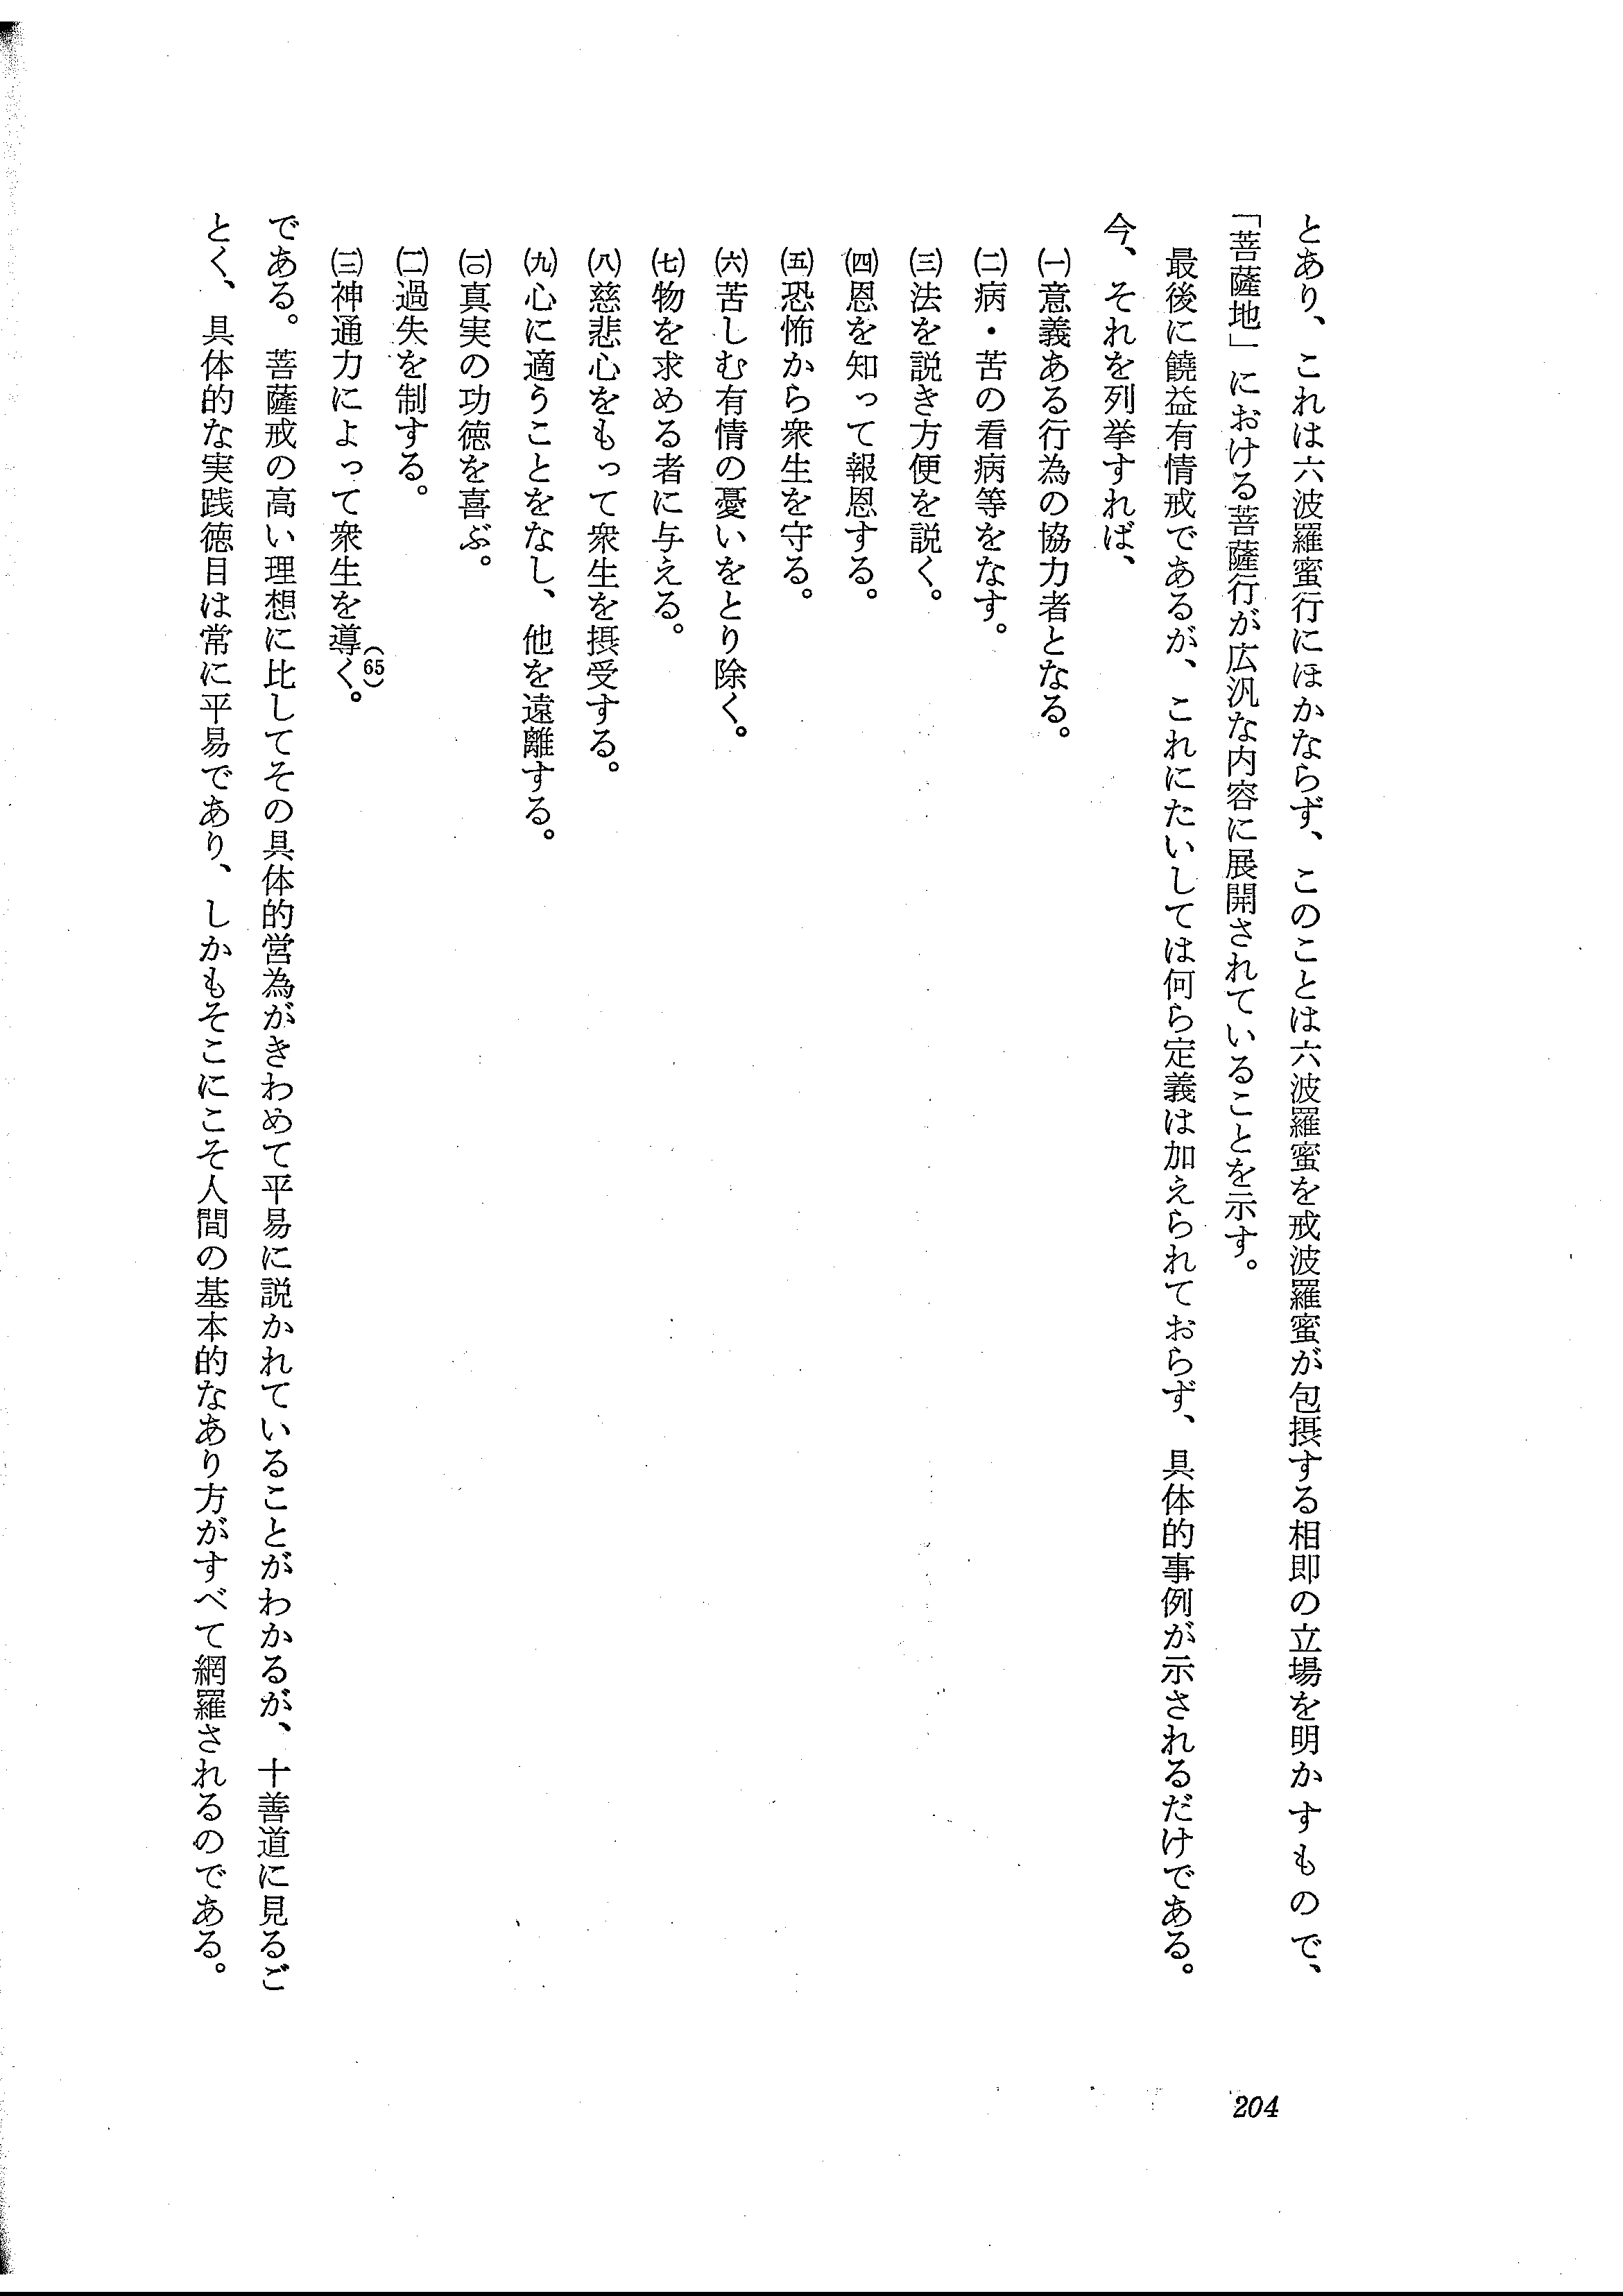 とあり、これは六波羅蜜行にほかならず、このことは六波羅蜜を戒波羅蜜が包摂する相即の立場を明かすもので、
「菩薩地」における菩薩行が広汎な内容に展開されていることを示す。
最後に饒益有情戒であるが、これにたいしては何ら定義は加えられておらず、具体的事例が示されるだけである。
今、それを列挙すれば、
㈠意義ある行為の協力者となる。
㈡病・苦の看病等をなす。
㈢法を説き方便を説く。
㈣恩を知って報恩する。
㈤恐怖から衆生を守る。
㈥苦しむ有情の憂いをとり除く。
㈦物を求める者に与える。
㈧慈悲心をもって衆生を摂受する。
㈨心に適うことをなし、他を遠離する。
(一〇)真実の功徳を喜ぶ。
(一一)過失を制する。
(一二)神通力によって衆生を導く。(65)
である。菩薩戒の高い理想に比してその具体的営為がきわめて平易に説かれていることがわかるが、十善道に見るご
とく、具体的な実践徳目は常に平易であり、しかもそこにこそ人間の基本的なあり方がすべて網羅されるのである。
204